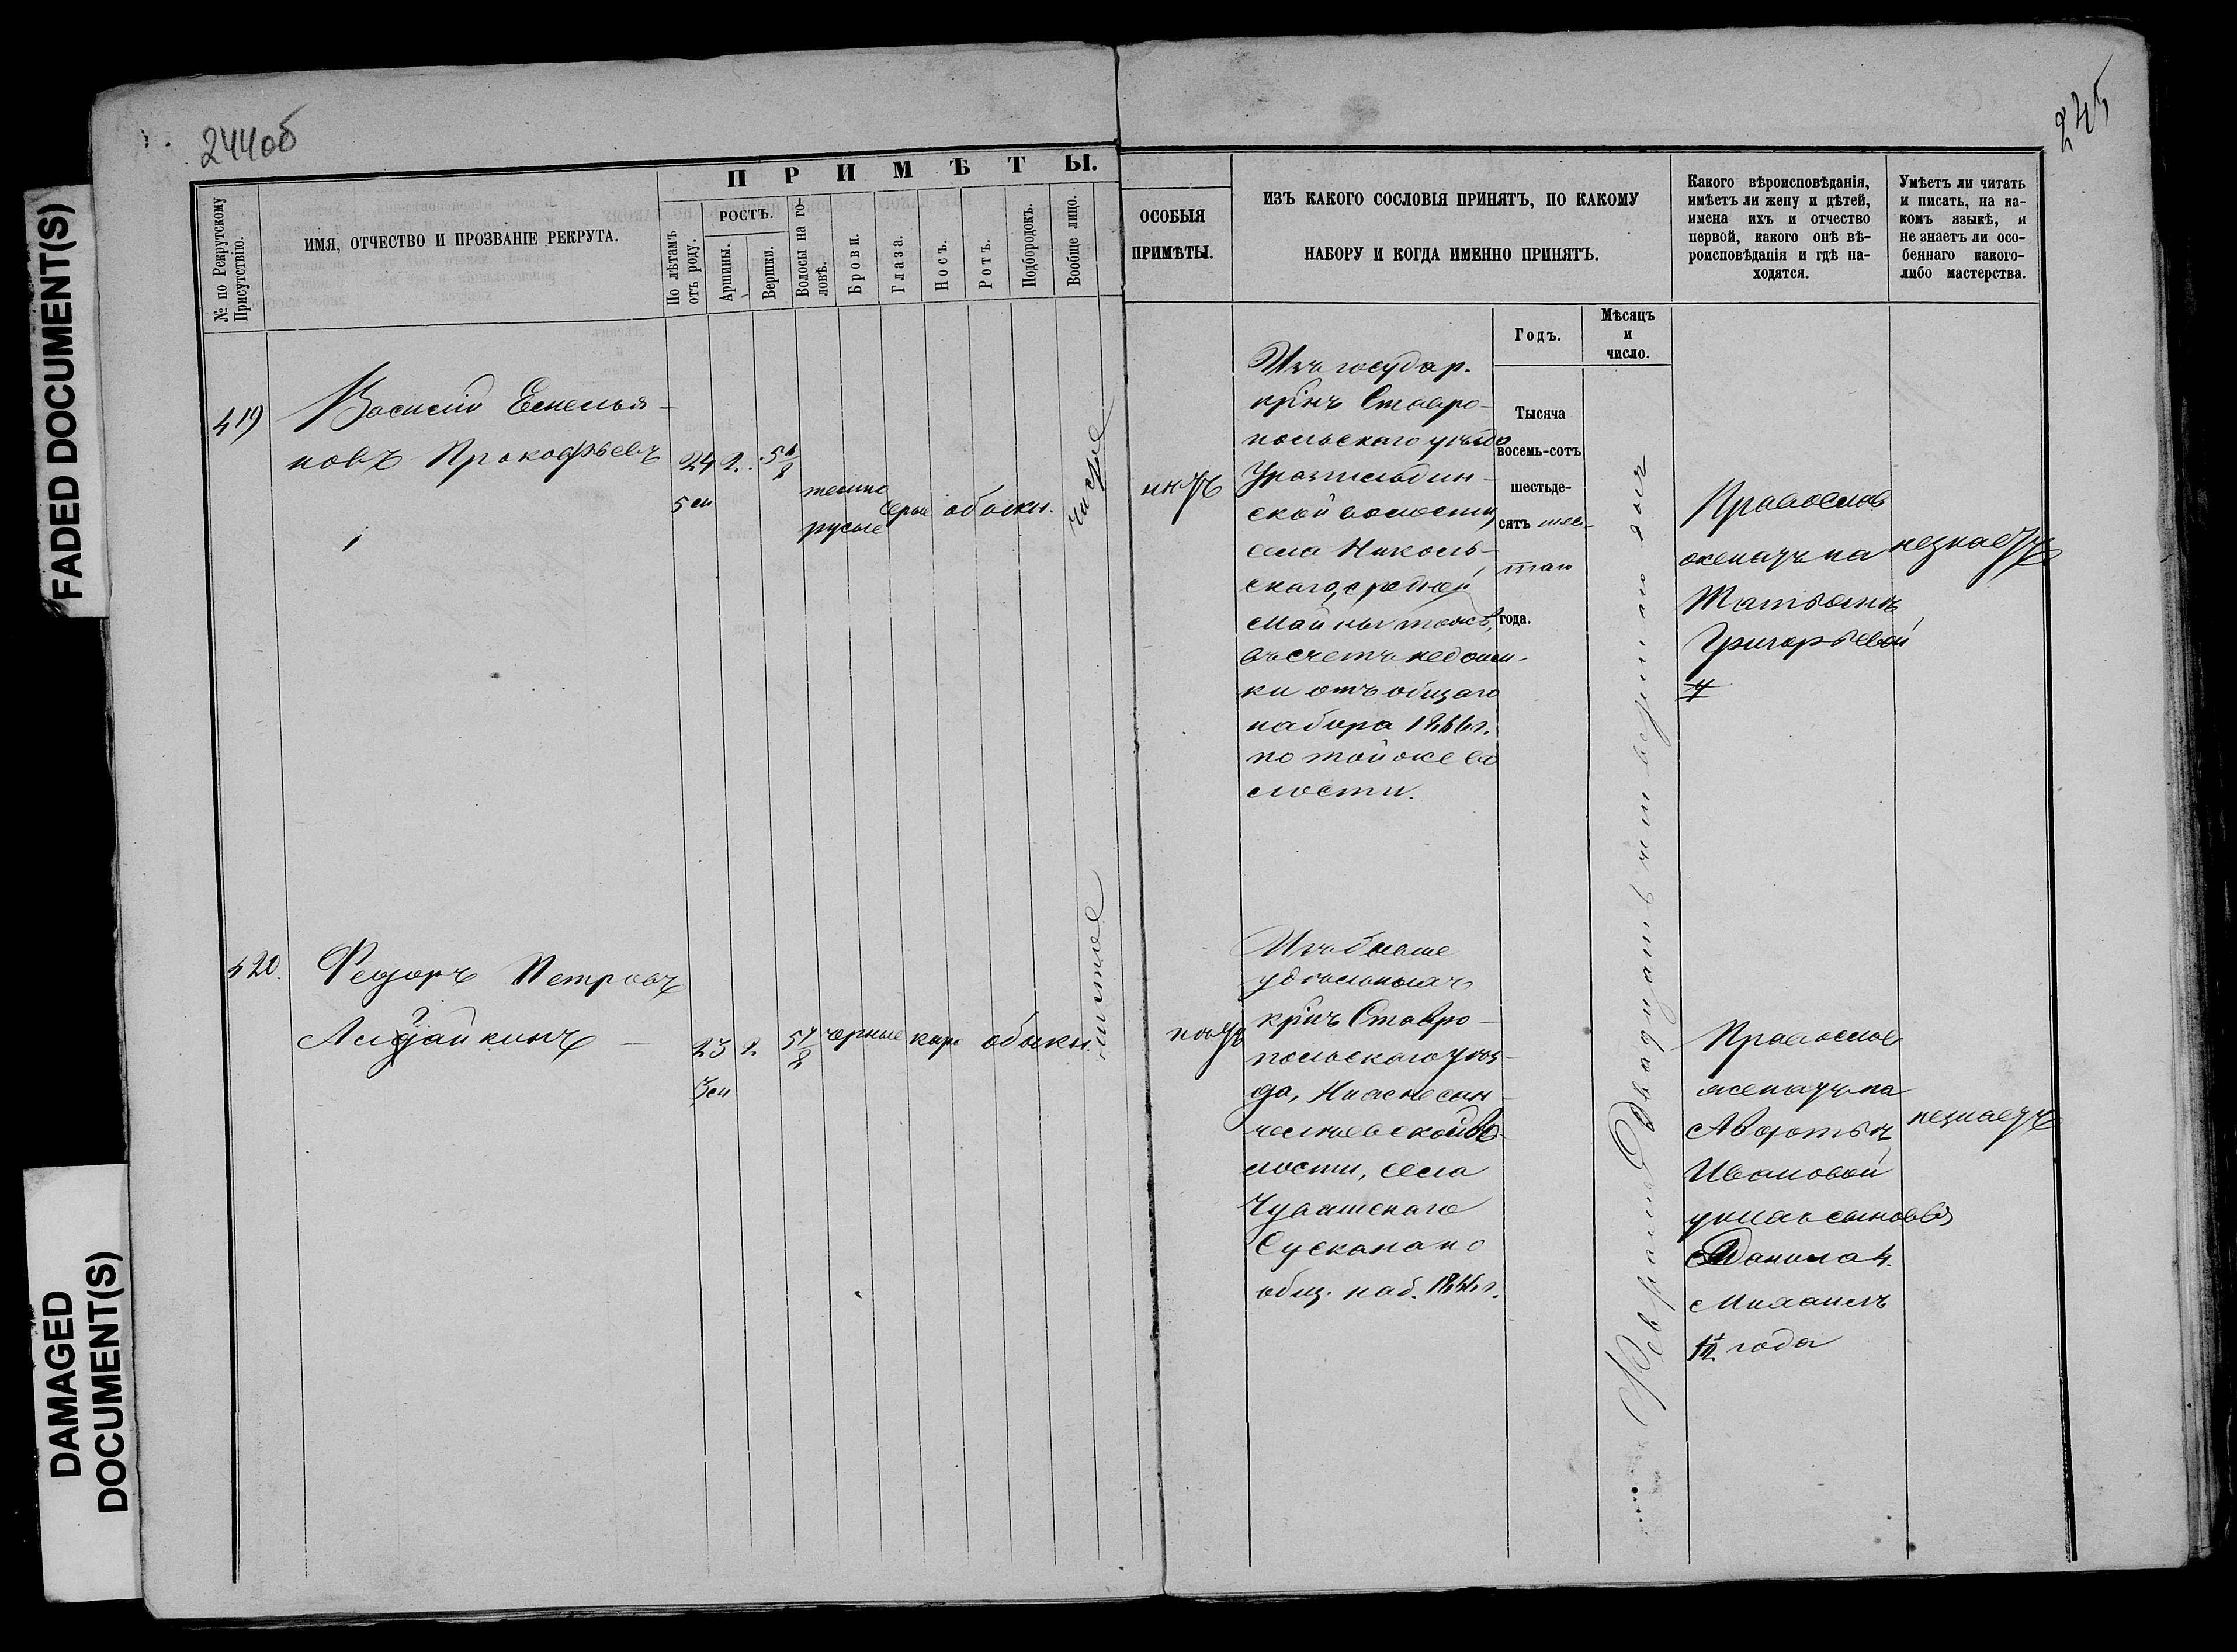 FADED DOCUMENT(S)
DAMAGED
DOCUMENT(S)
244об
245
ПРИМѢТЫ.
№ по Рекрутскому
Присутствію.
ИМЯ, ОТЧЕСТВО И ПРОЗВАНІЕ РЕКРУТА.
По лѣтамъ
отъ роду.
РОСТЪ.
Аршины.
Вершки.
Волосы на го-
ловѣ.
Брови.
Глаза.
Носъ.
Ротъ.
Подбородокъ.
Вообще лицо.
ОСОБЫЯ
ПРИМѢТЫ.
ИЗЪ КАКОГО СОСЛОВІЯ ПРИНЯТЪ, ПО КАКОМУ
НАБОРУ И КОГДА ИМЕННО ПРИНЯТЪ.
Какого вѣроисповѣданія,
имѣетъ ли жену и дѣтей,
имена ихъ и отчество
первой, какого онѣ вѣ-
роисповѣданія и гдѣ на-
ходятся.
Умѣетъ ли читать
и писать, на ка-
комъ языкѣ, и
не знаетъ ли осо-
беннаго какого-
либо мастерства.
Годъ.
Мѣсяцъ
и
число.
419
Василій Емелья-
новъ Прокофьевъ
24 2. 5 6/8
5 м
темно
русые
серые обыкн.
чистое
нѣтъ
Изъ государ.
кр͠нъ Ставро-
польскаго уѣзда
ской волости,
села Николь-
скаго, средней
Майны тожъ,
въ счетъ недоим-
ки отъ общаго
набора 1866 г.
по той же во
лости.
Тысяча
восемь-сотъ
шестьде-
сятъ шес-
таго
года.
Февраля Двадцать четвертаго дня
Православ
женатъ на
Татьянѣ
Григорьевой
незнаетъ
420.
Федоръ Петровъ
23 2. 5 7/8
3 м
черные каріе обыкн.
чистое
нѣтъ
Изъ бывше
удѣльныхъ
кр͠нъ Ставро-
польскаго уѣз-
да, Нижнесан-
челеевской во-
лости, села
Чувашскаго
Сускана по
общ. наб. 1866 г.
Православ
женатъ на
Авдотьѣ
Ивановой
у нихъ сыновья
Данила 4.
Михаилъ
1/2 года
незнаетъ